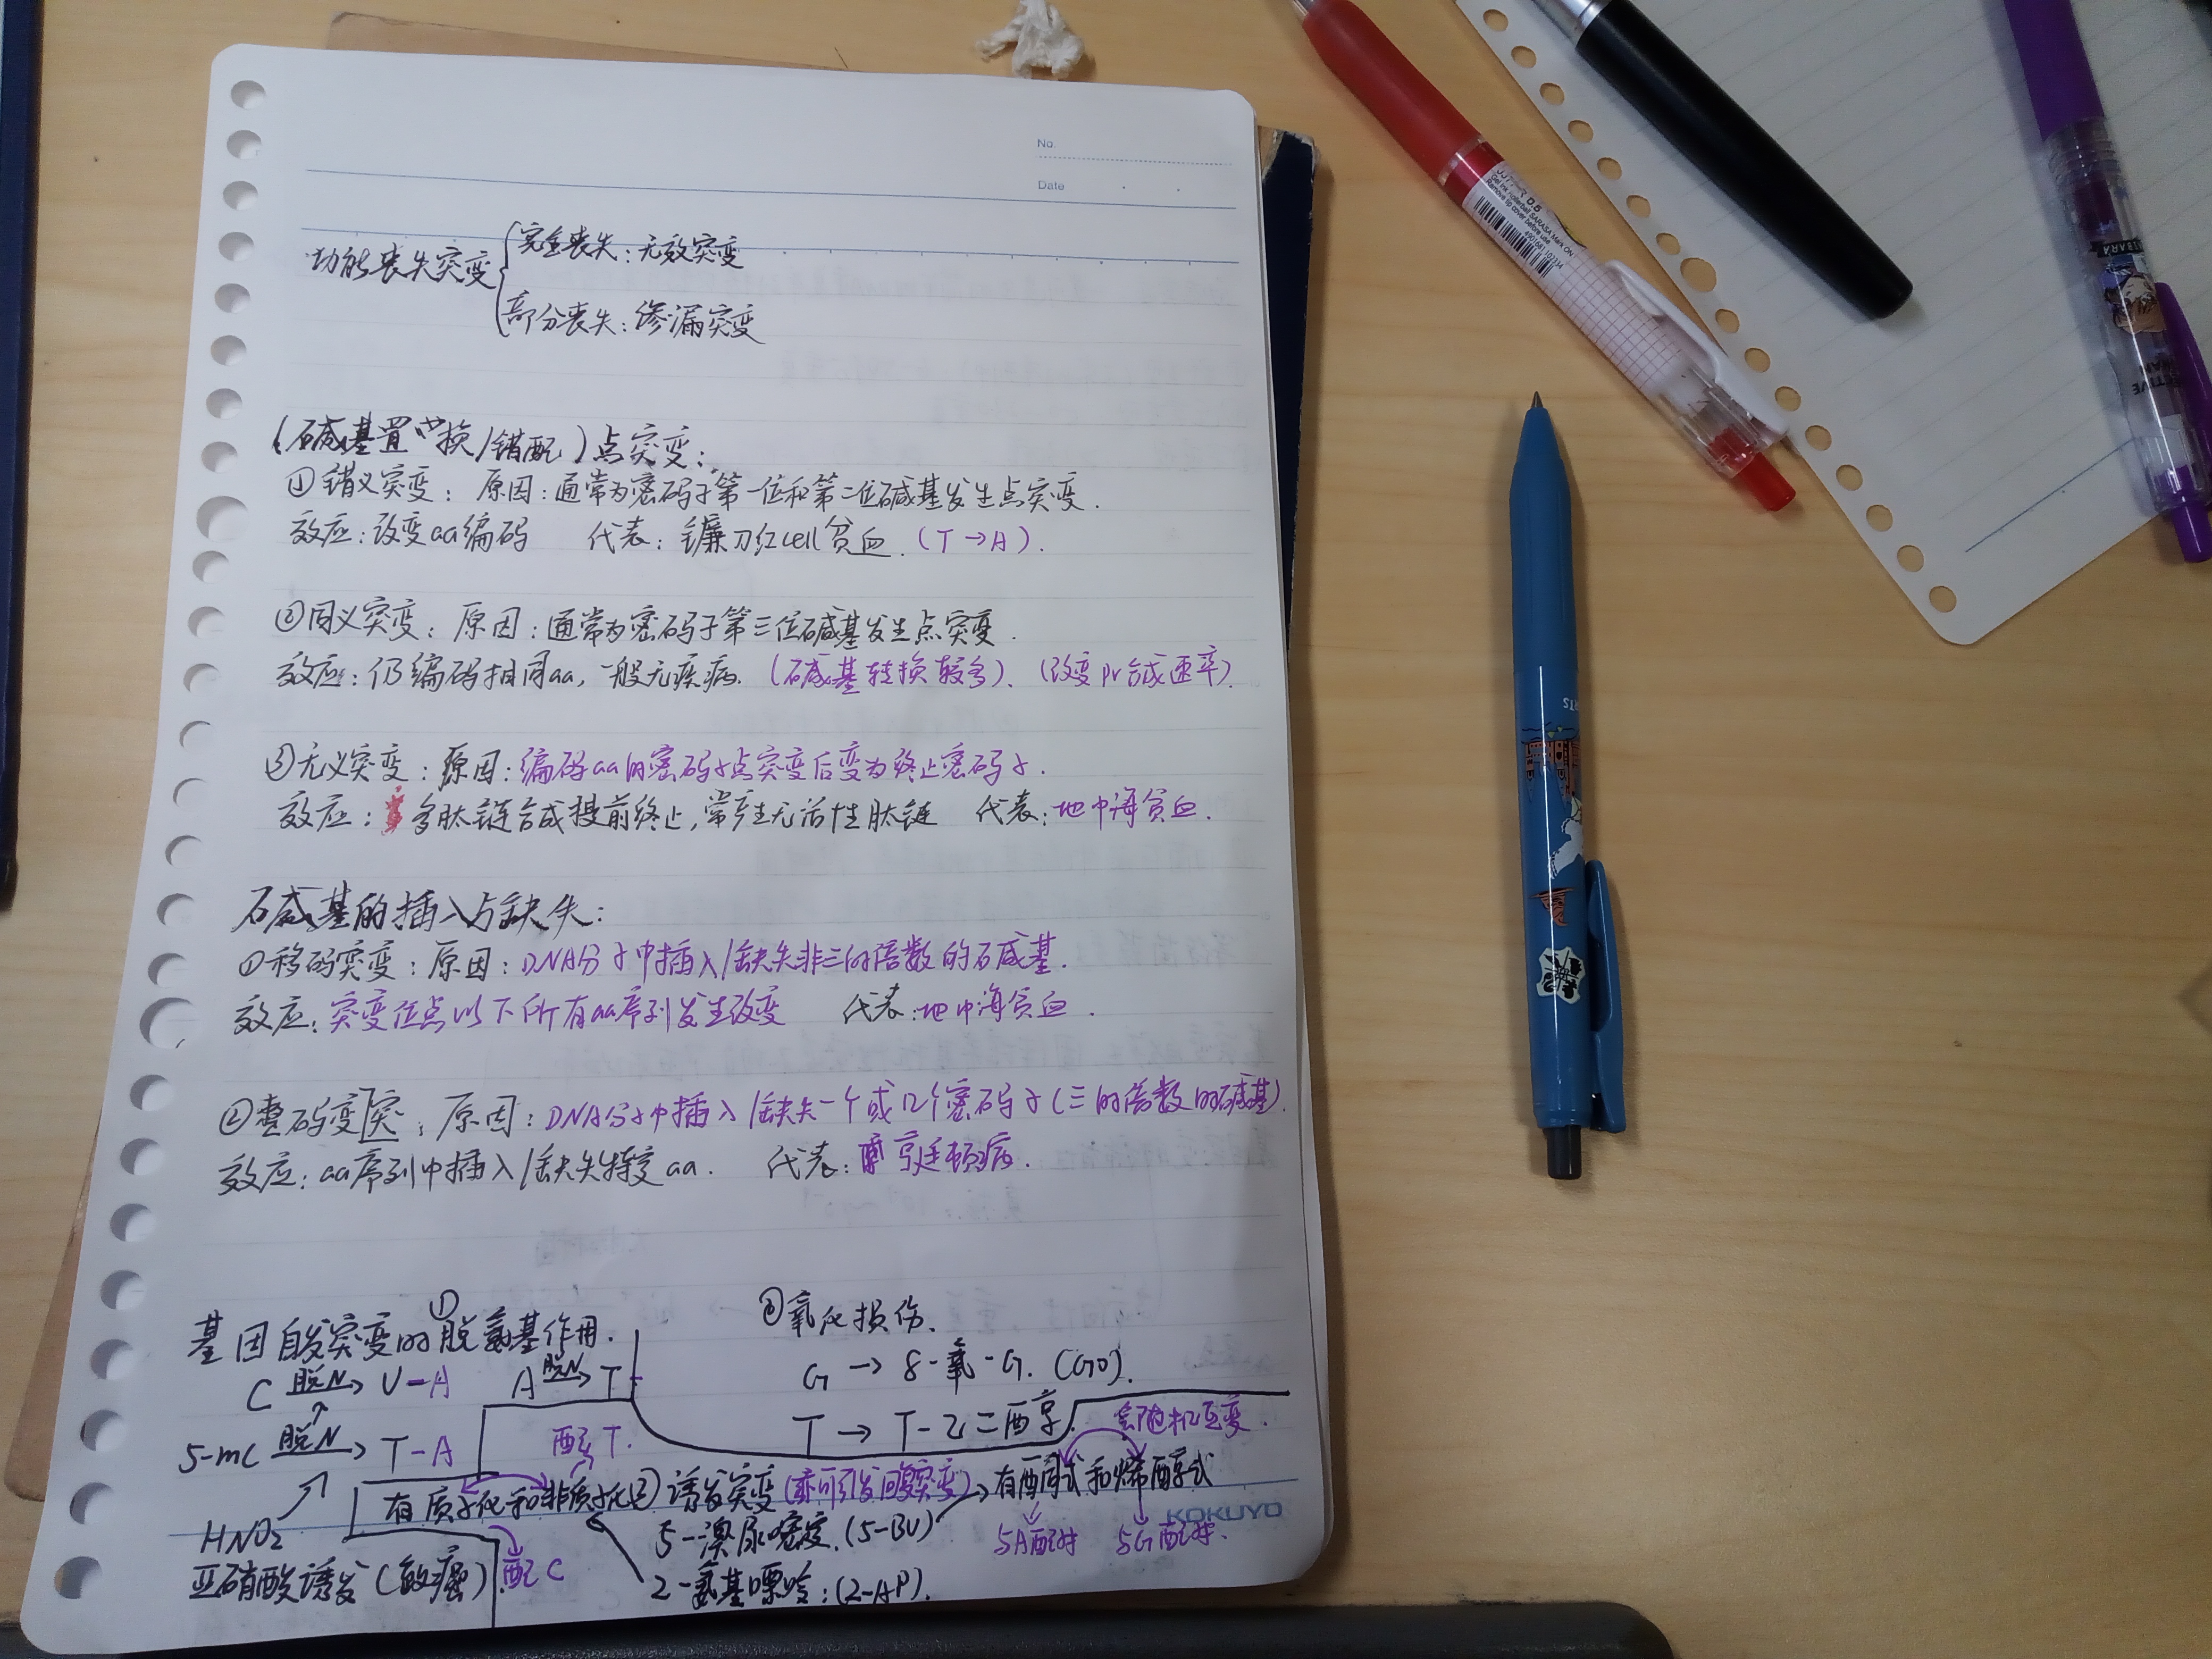 No.
Date
功能丧失突变
完全丧失：无效突变
部分丧失：渗漏突变
(碱基置换/错配)点突变：
①错义突变：原因：通常为密码子第一位和第二位碱基发生点突变.
效应：改变aa编码 代表：镰刀红cell贫血.(T→A).
②同义突变：原因：通常为密码子第三位碱基发生点突变.
效应：仍编码相同aa，一般无疾病.(碱基转换较多)、(改变pr合成速率).
③无义突变：原因：编码aa的密码子点突变后变为终止密码子.
效应：多肽链合成提前终止,常产生无活性肽链 代表：地中海贫血.
碱基的插入与缺失：
①移码突变：原因：DNA分子中插入/缺失非三的倍数的碱基.
效应：突变位点以下所有aa序列发生改变 代表：地中海贫血.
②整码变突：原因：DNA分子中插入/缺失一个或几个密码子(三的倍数的碱基).
效应：aa序列中插入/缺失 aa. 代表：亨廷顿病.
基因自发突变的①脱氨基作用.
②氧化损伤.
C 脱N→ U-A A 脱N→ T-
G → 8-氧-G.(GO).
5-mC 脱N→ T-A
配T.
T → T-乙二醇
会随机互变.
有质子化和非质子化
② 诱发突变(亦可引发回复突变)
有酮式和烯醇式
HNO2
5-溴尿嘧啶.(5-BU)
与A配对 与G配对.
KOKUYO
亚硝酸诱发(致癌).
配C
2-氨基嘌呤：(2-AP).
0.5
Gel ink rollerball SARASA Mark ON
Remove tip cover before use